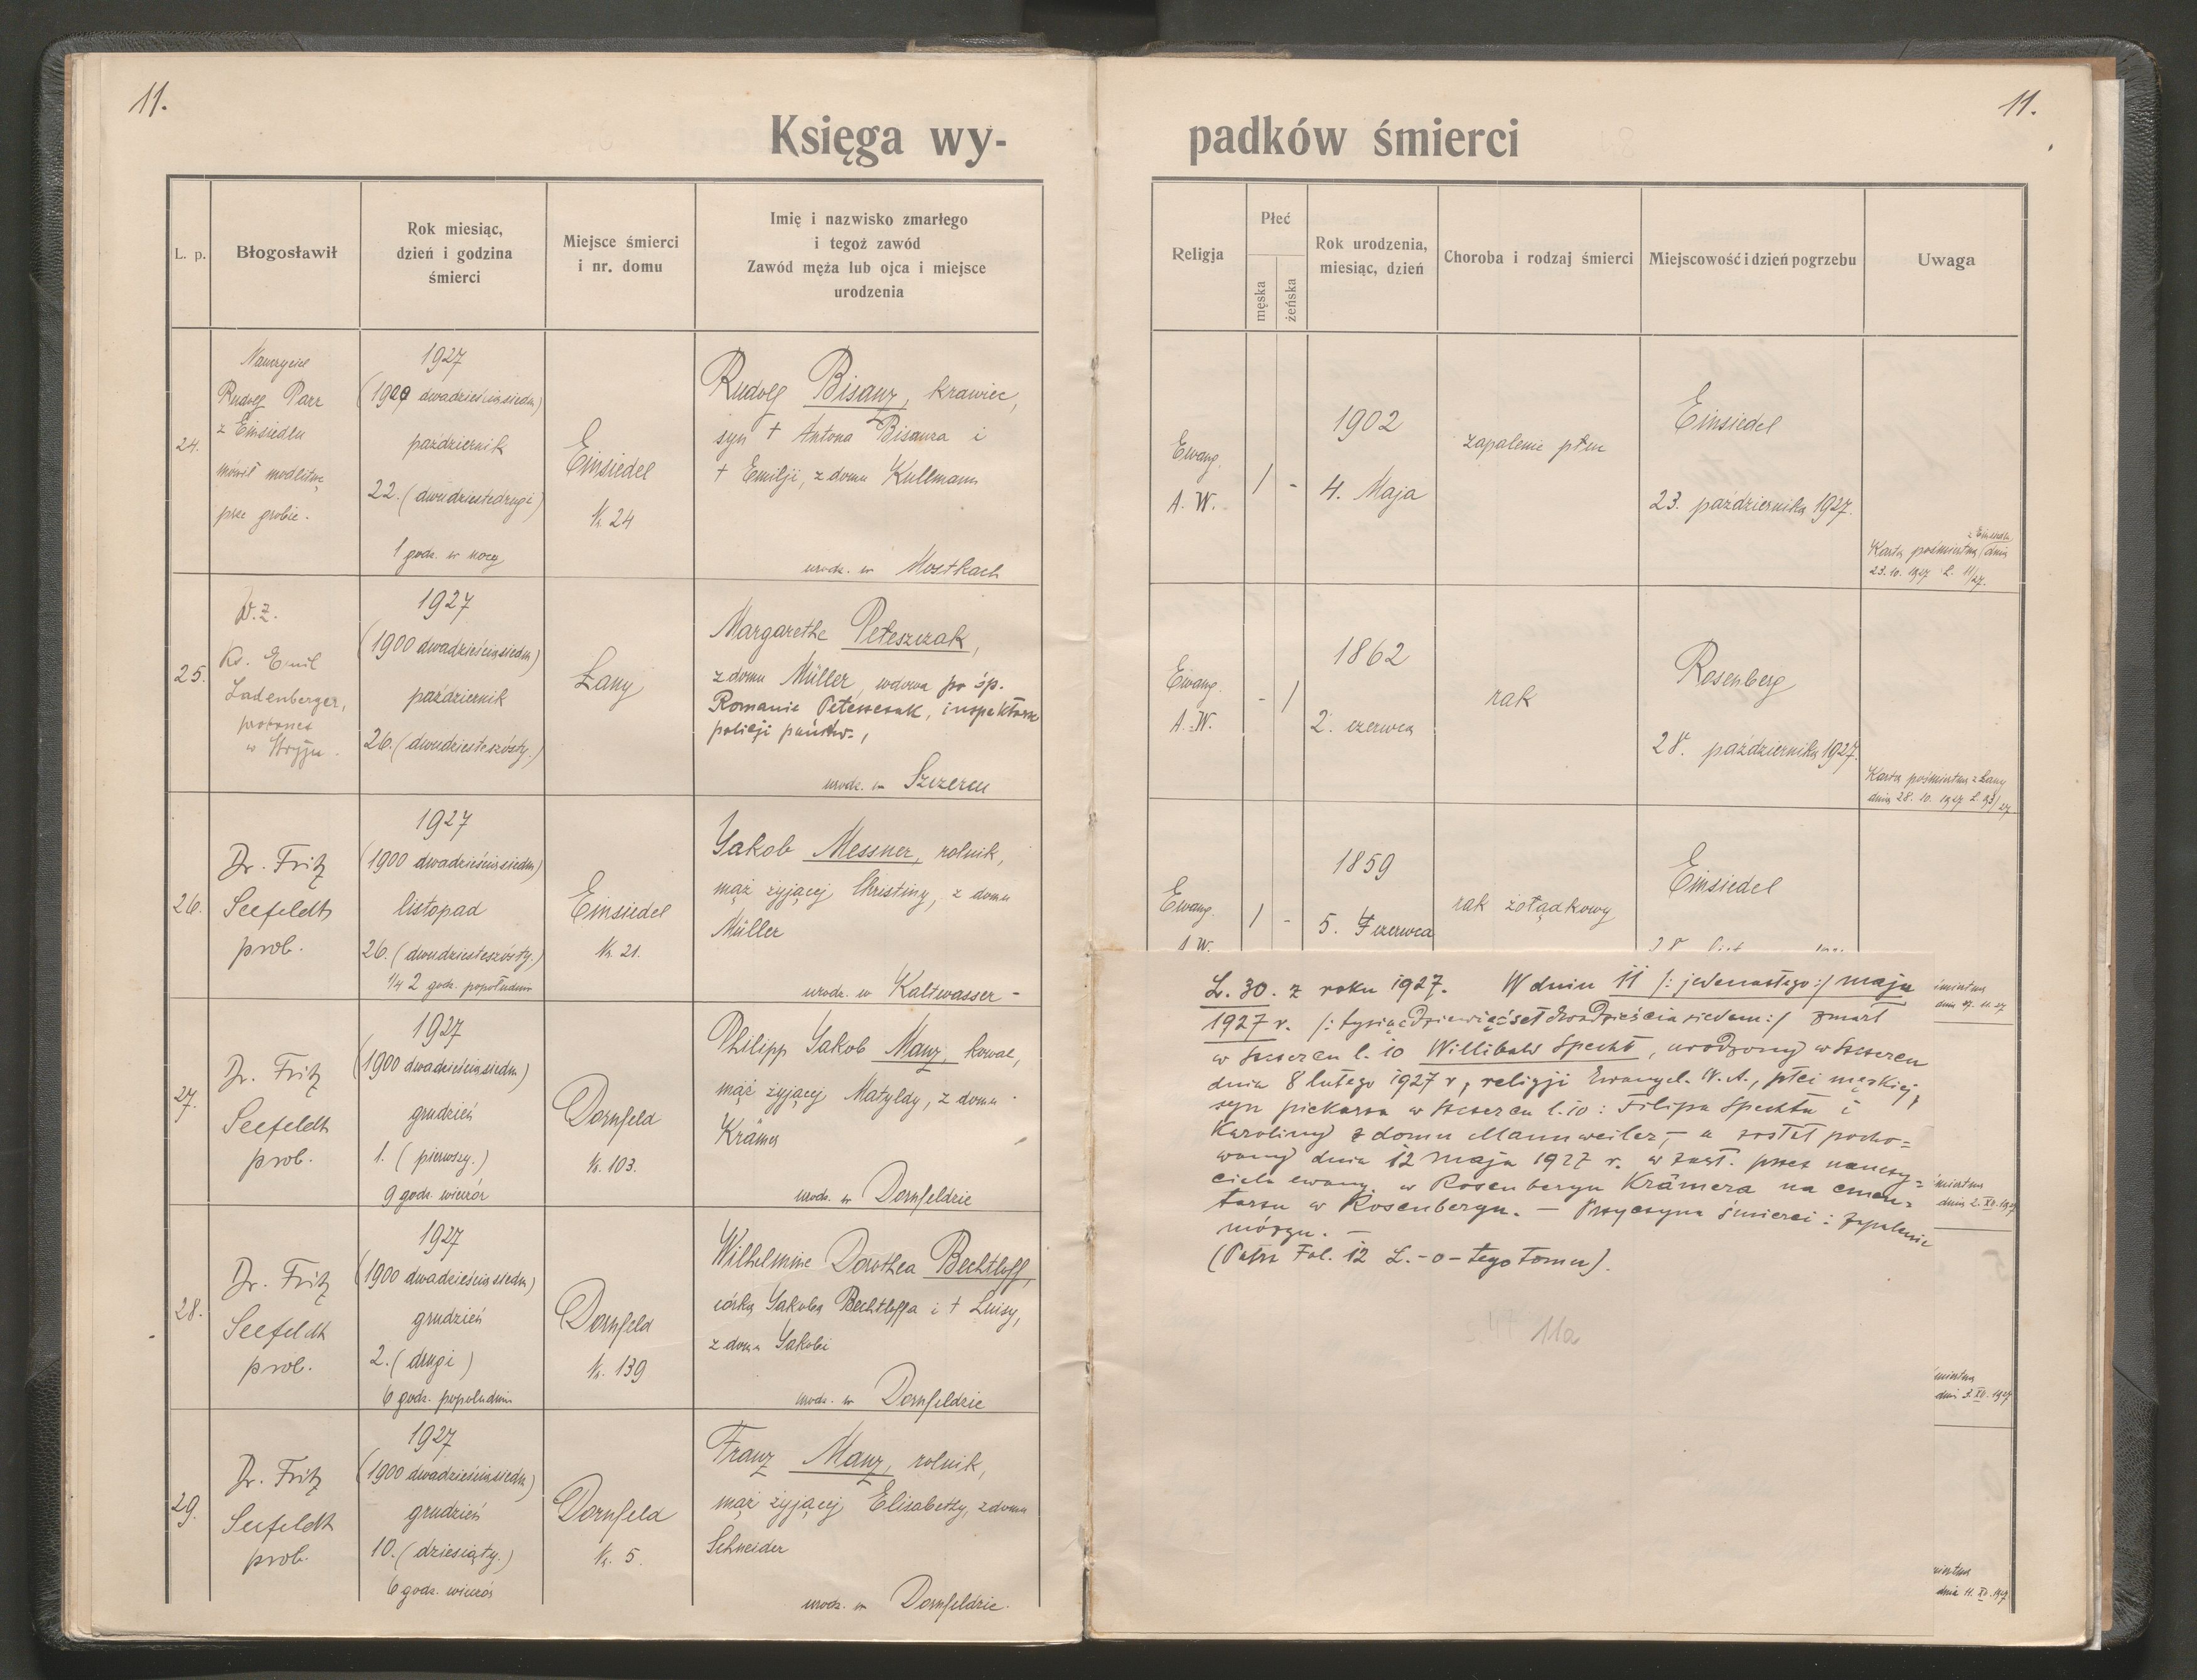 11.
Księga wy-
L. p.
Błogosławił
Rok miesiąc,
dzień i godzina
śmierci
Miejsce śmierci
i nr. domu
Imię i nazwisko zmarłego
i tegoż zawód
Zawód męża lub ojca i miejsce
urodzenia
24.
Nauczyciel
Rudolf Parr
z Einsiedlu
mówił modlitwę
prze grobie.
1927
(1900 dwadzieściasiedm)
październik
22. (dwudziestedrugi)
1 godz. w nocy
Einsiedel
Nr. 24
Rudolf Bisanz, krawiec,
syn † Antona Bisanza i
† Emilji, z domu Kullmann
urodz. w Mostkach
25.
W. z.
Ks. Emil
Ladenberger,
proboszcz
w Stryju.
1927
(1900 dwadzieściasiedm)
październik
26. (dwudziesteszósty.)
Łany
Margarethe Peteszczak,
z domu Müller, wdowa po śp.
Romanie Peteszczak, inspektorze
policji państw.,
urodz. w Szczercu
26.
Dr. Fritz
Seefeldt
prob.
1927
(1900 dwadzieściasiedm)
listopad
26. (dwudziesteszósty.)
1/4 2 godz. popołudniu
Einsiedel
Nr. 21.
Jakob Messner, rolnik,
mąż żyjącej Christiny, z domu
Müller
urodz. w Kaltwasser -
27.
Dr. Fritz
Seefeldt
prob.
1927
(1900 dwadzieściasiedm)
grudzień
1. (pierwszy.)
9 godz. wieczór
Dornfeld
Nr. 103.
Philipp Jakob Manz, kowal,
mąż żyjącej Matyldy, z domu
Krämer
urodz. w Dornfeldzie
28.
Dr. Fritz
Seefeldt
prob.
1927
(1900 dwadzieściasiedm)
grudzień
2. (drugi)
6 godz. popołudniu
Dornfeld
Nr. 139
Wilhelmine Dorothea Bechtloff,
córka Jakoba Bechtloffa i † Luisy,
z domu Jakobi
urodz. w Dornfeldzie
29.
Dr. Fritz
Seefeldt
prob.
1927
(1900 dwadzieściasiedm)
grudzień
10. (dziesiąty.)
6 godz. wieczór
Dornfeld
Nr. 5.
Franz Manz, rolnik,
mąż żyjącej Elisabethy, z domu
Schneider
urodz. w Dornfeldzie.
11.
padków śmierci
Religja
Płeć
męska
żeńska
Rok urodzenia,
miesiąc, dzień
Choroba i rodzaj śmierci
Miejscowość i dzień pogrzebu
Uwaga
Ewang.
A. W.
/ -
1902
4. Maja
zapalenie płuc
Einsiedel
23. października 1927.
z Einsiedlu
Karta pośmiertna dnia
23. 10. 1927 L. 11/27.
Ewang.
A. W.
- /
1862
2. czerwca
rak
Rosenberg
28. października 1927.
Karta pośmiertna z Łany
dnia 28. 10. 1927 L. 93/27
Ewang.
A W.
/ -
1859
5. czerwca
rak żołądkowy
Einsiedel
L. 30. z roku 1927. W dniu 11 /: jedenastego :/ maja
1927 r. /: tysiącdziewięćset dwadzieścia siedem :/ zmarł
w Szczercu l. 10 Willibald Specht, urodzony w Szczercu
dnia 8 lutego 1927 r, religji Ewangel. W. A., płci męskiej,
syn piekarza w Szczercu l. 10 : Filipa Spechta i
Karoliny z domu Mannweiler, - a został pocho=
wany dnia 12 maja 1927 r. w zast. przez nauczy=
ciela ewang. w Rosenbergu Krämera na cmen=
tarzu w Rosenbergu. - Przyczyna śmierci : zapalenie
mózgu. -
(Patrz Fol. 12 L. - o - tego tomu).
11a
śmiertna
dnia 27. 11. 27
miertna
dnia 2. XII. 1927
śmiertna
dnia 3. XII. 1927
miertna
dnia 11. XII. 1927